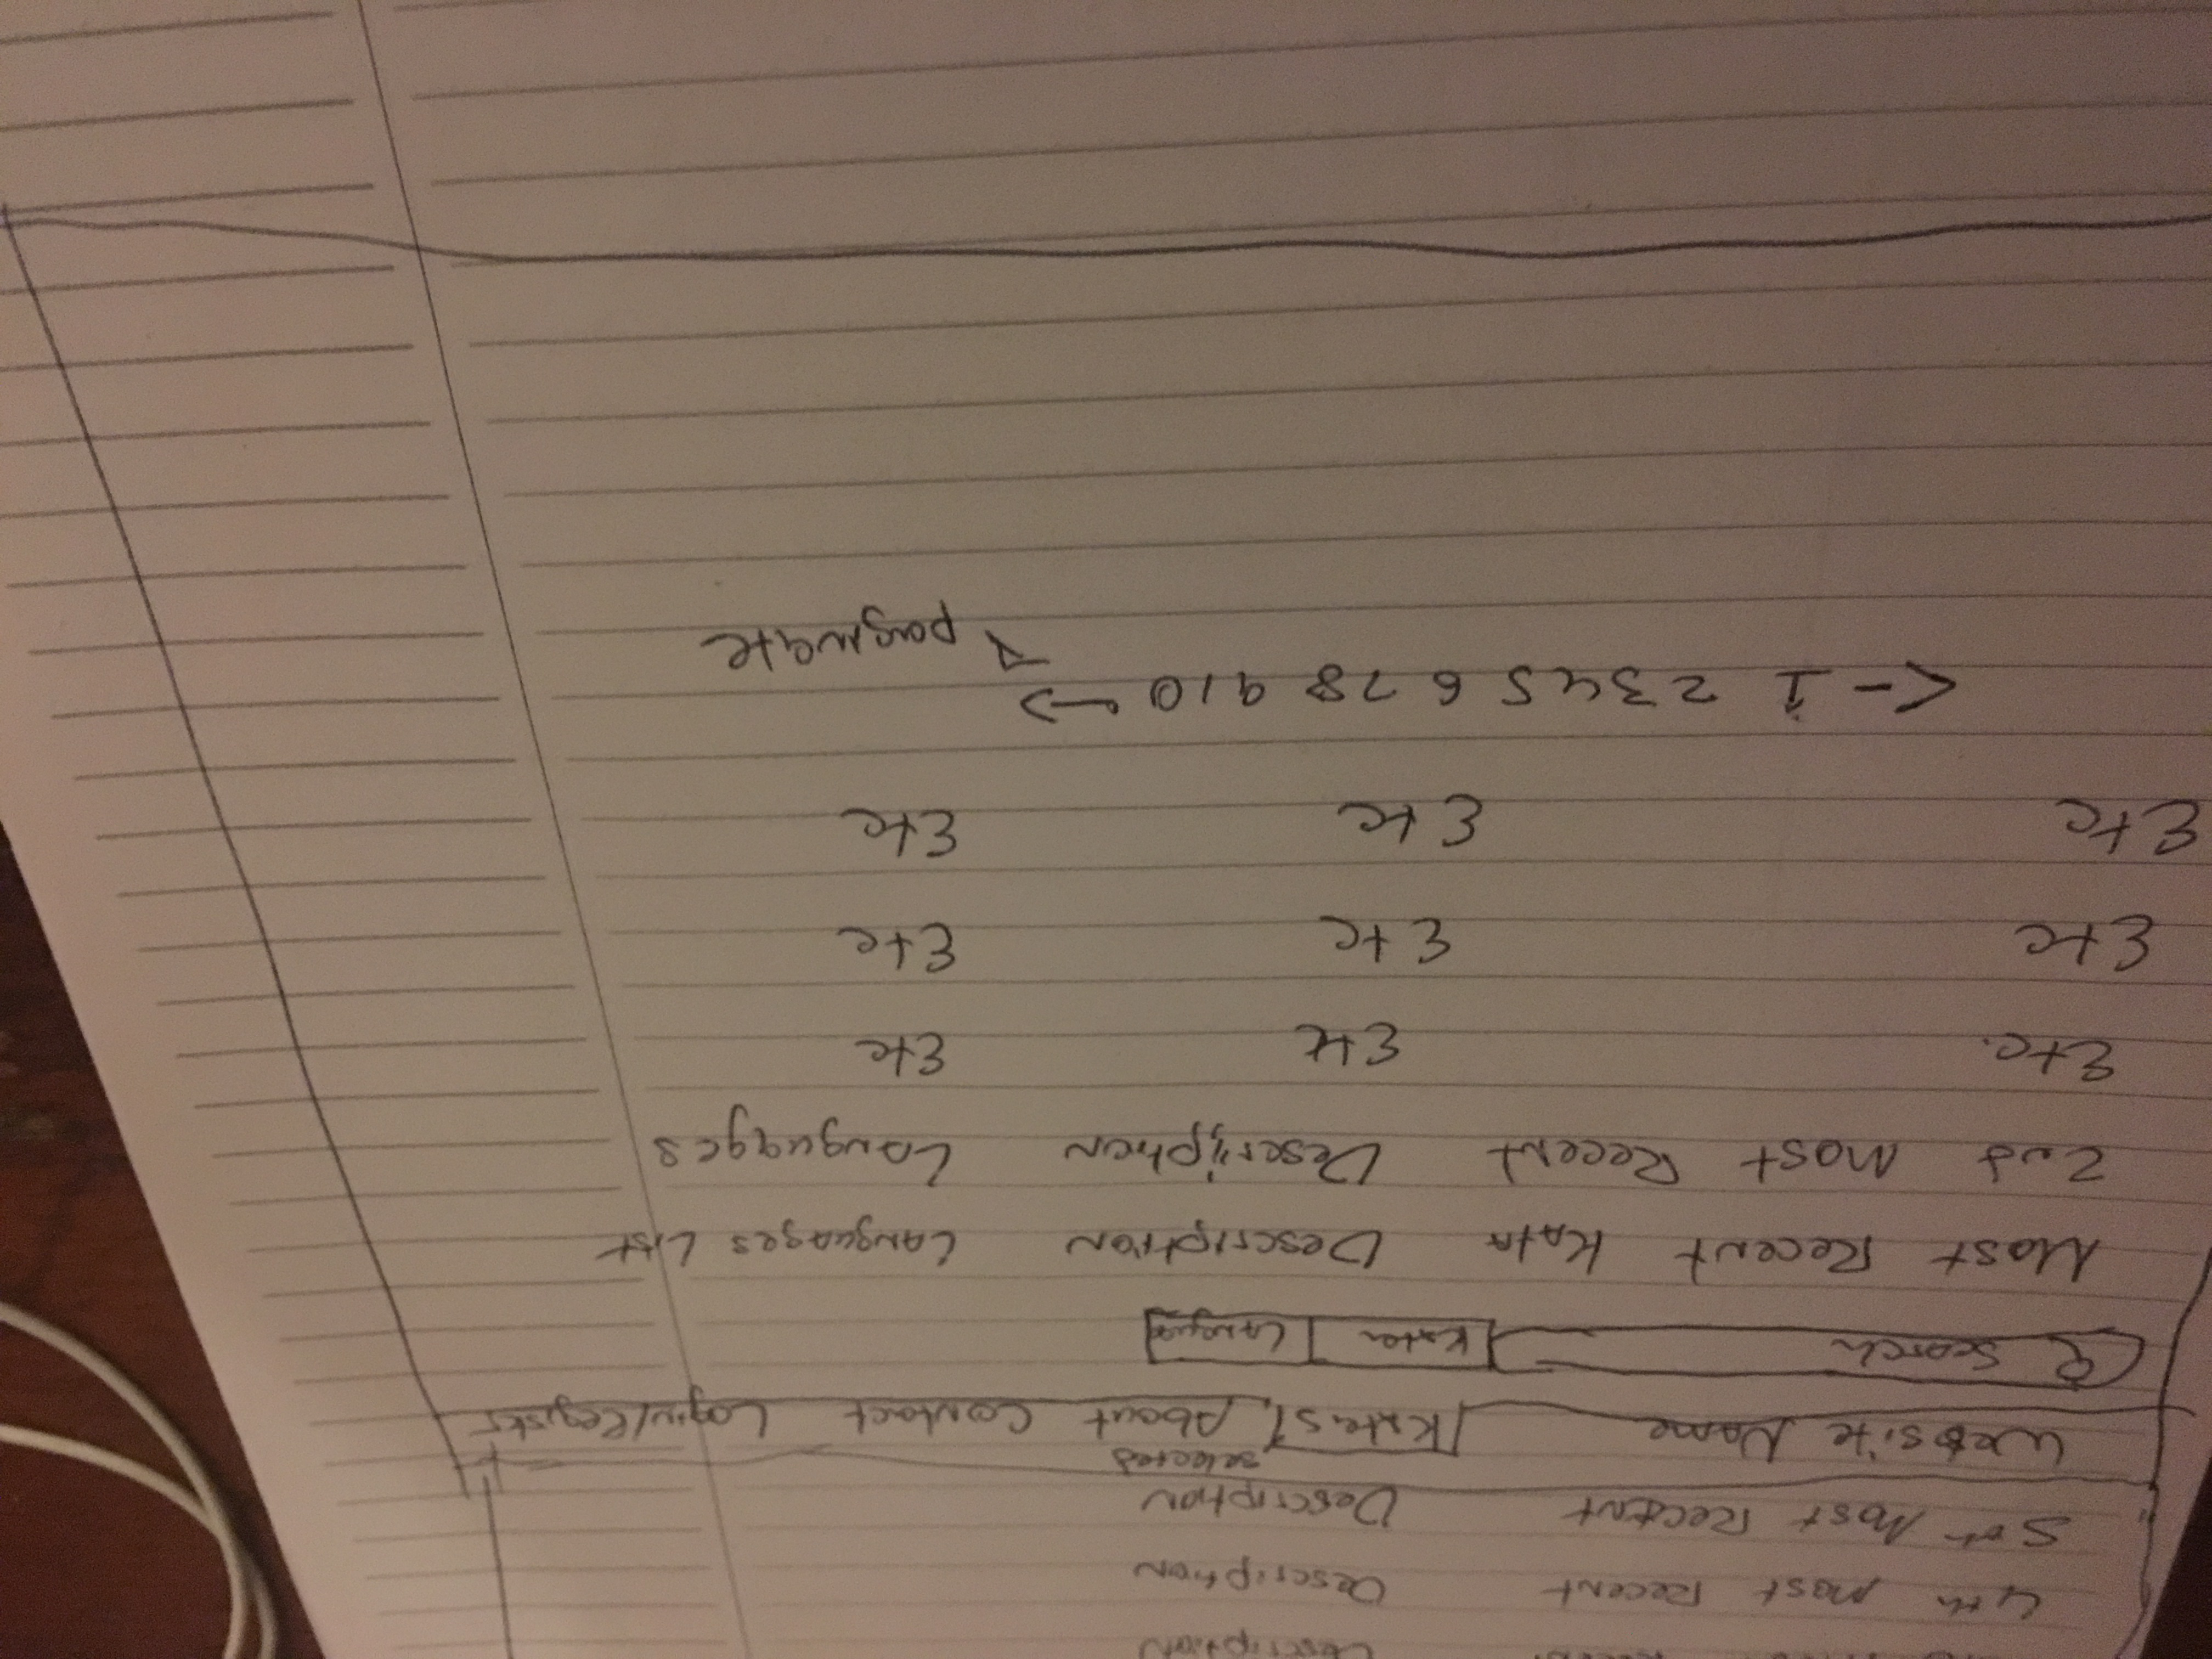 Recent Description
4th Most Recent Description
5th Most Recent Description
selected
Website Name Katas About Contact Login/Register
Search Katas Language
Most Recent Kata Description Languages List
2nd Most Recent Description Languages
Etc. Etc Etc
Etc Etc Etc
Etc Etc Etc
<- 1 2 3 4 5 6 7 8 9 10 ->
paginate